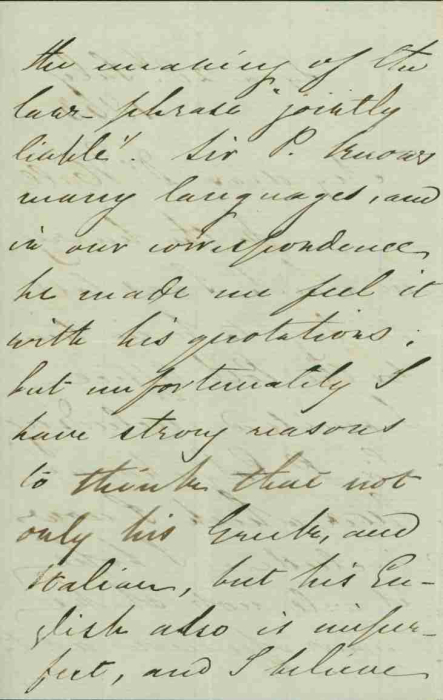 the meaning of the
law-phrase "jointly
liable". Sir P. knows
many languages, and
in our correspondence
he made me feel it
with his quotations;
but unfortunately I
have strong reasons
to think that not
only his Greek, and
Italian, but his En-
glish also is imper-
fect, and I believe